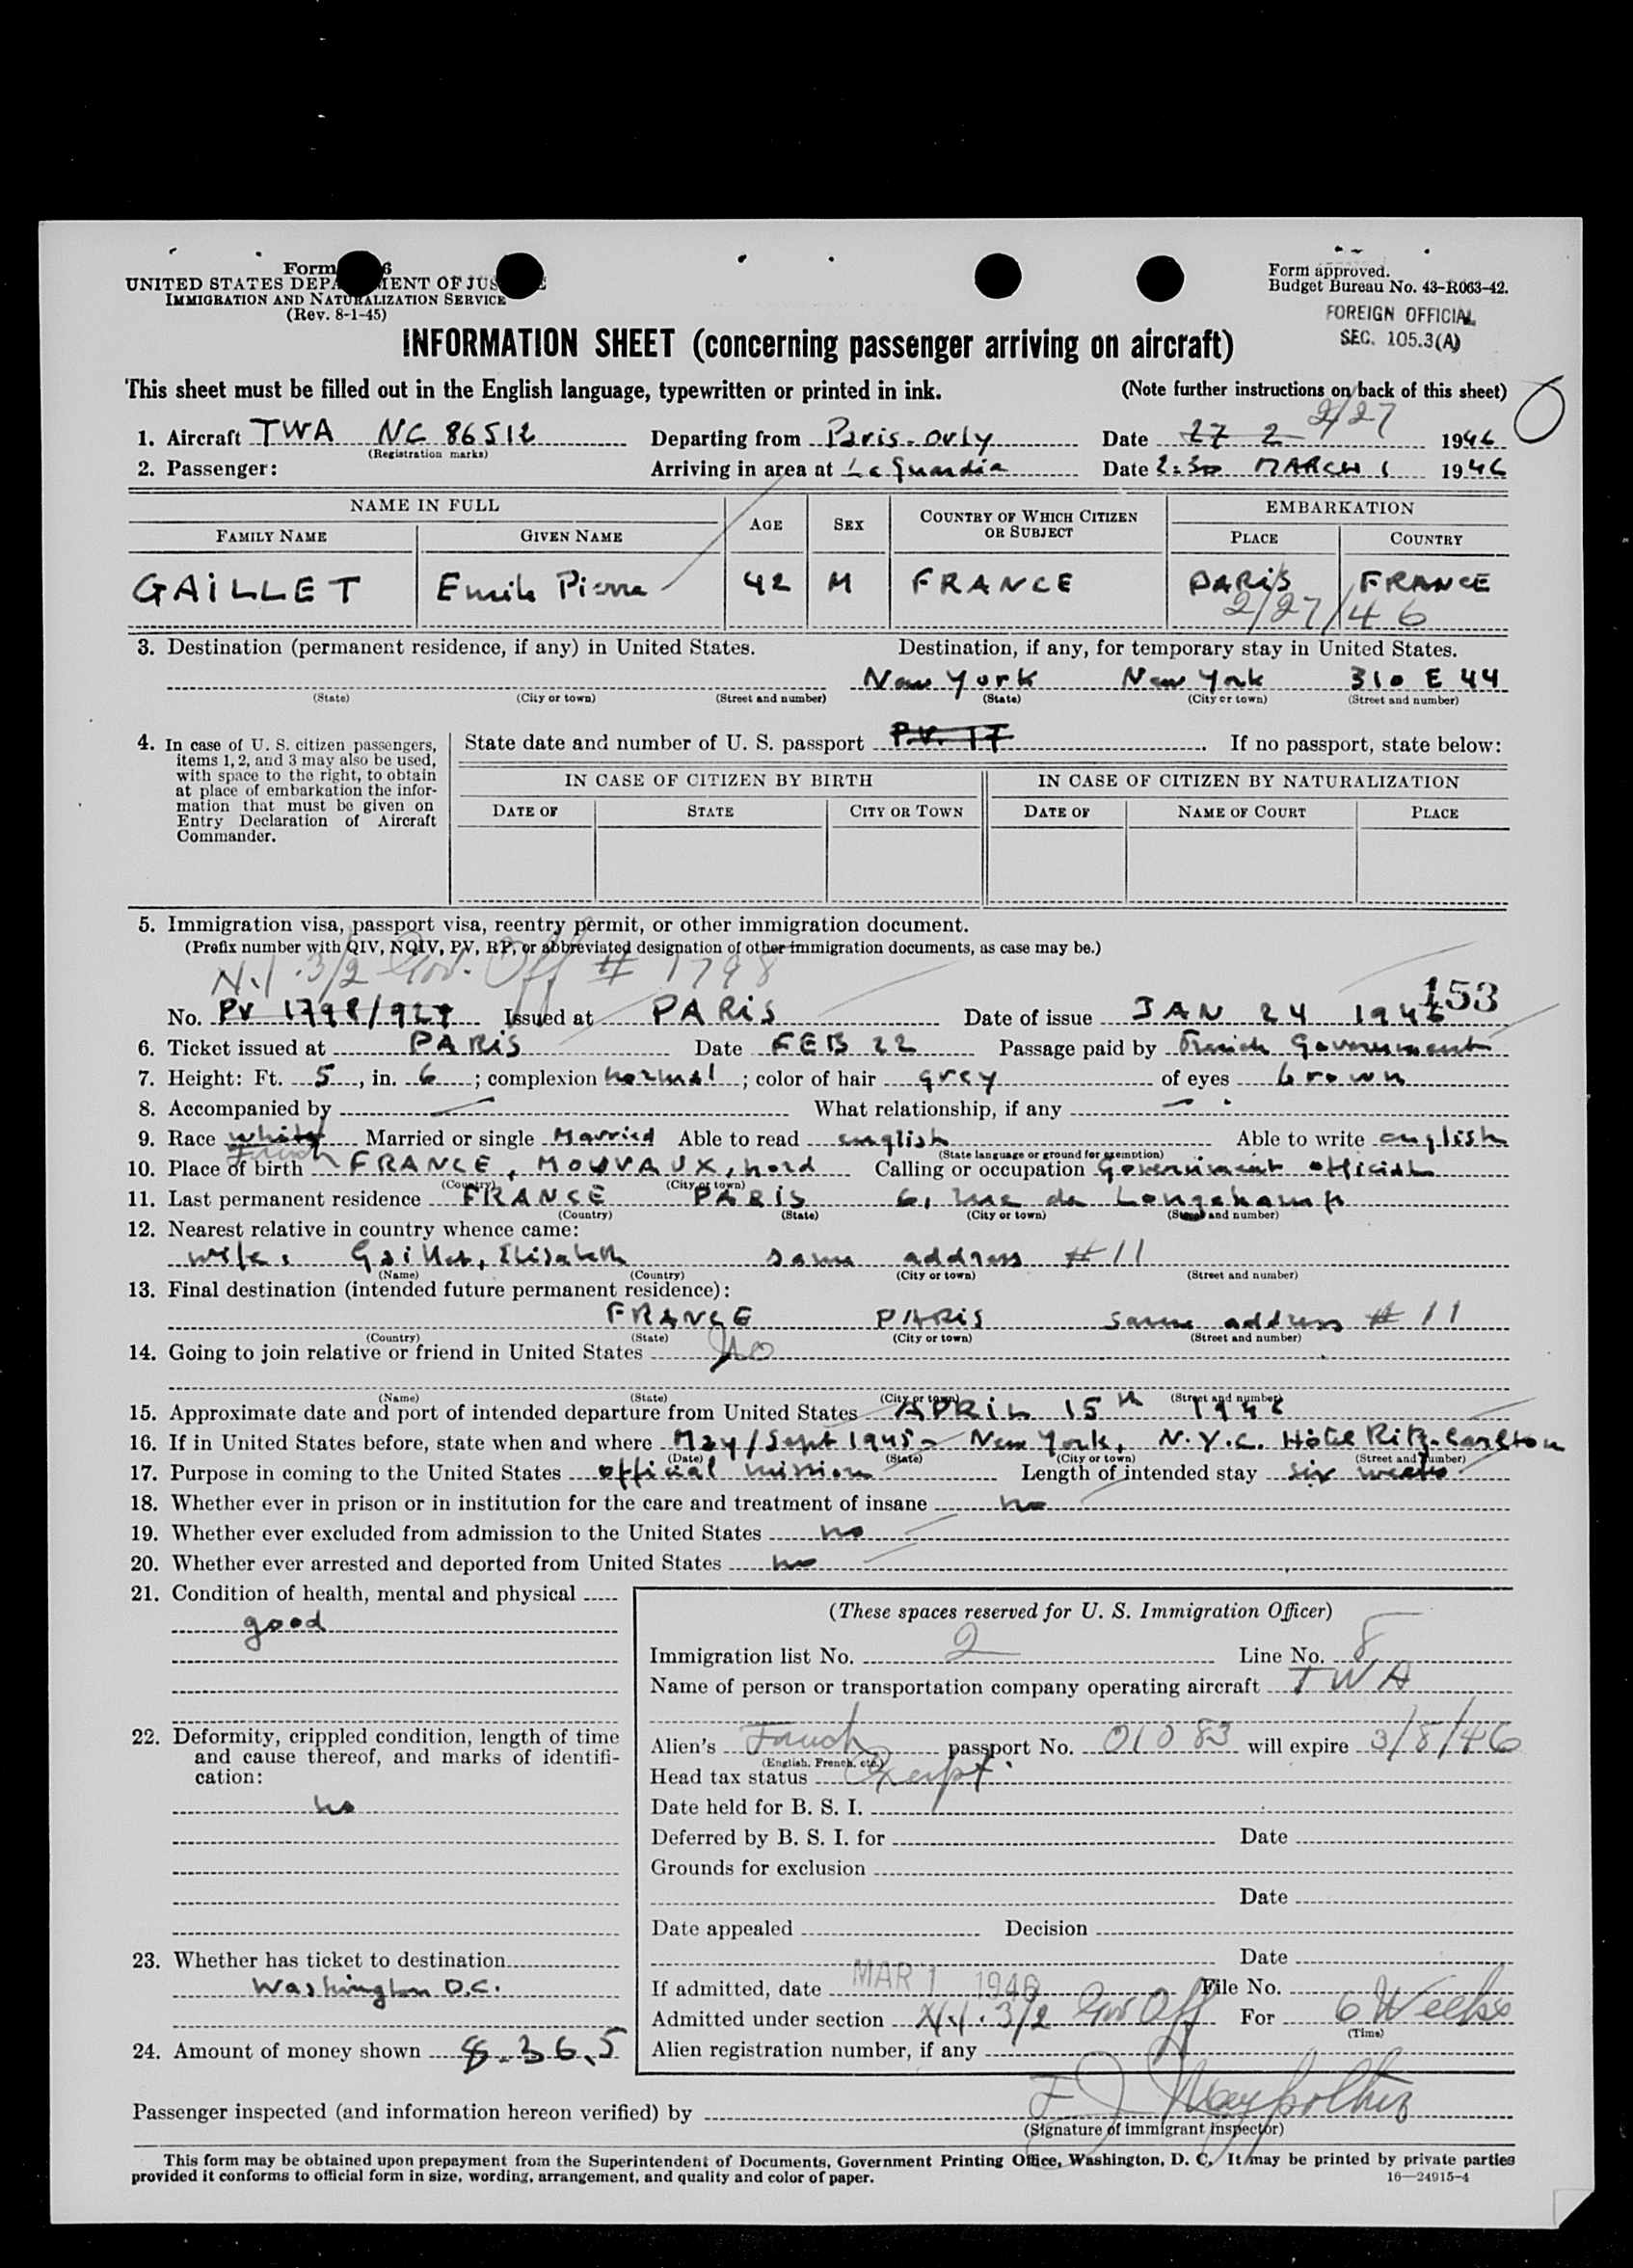 Form 6
UNITED STATES DEPA MENT OF JUS E
IMMIGRATION AND NATURALIZATION SERVICE
(Rev. 8-1-45)
Form approved.
Budget Bureau No. 43-R063-42.
FOREIGN OFFICIAL
SEC. 105.3(A)
INFORMATION SHEET (concerning passenger arriving on aircraft)
This sheet must be filled out in the English language, typewritten or printed in ink. (Note further instructions on back of this sheet)
2/27
1. Aircraft TWA NC 86512 Departing from Paris-Orly Date 27 2 1946
(Registration marks)
2. Passenger: Arriving in area at La Guardia Date 2:30 MARCH 1 1946
NAME IN FULL AGE SEX COUNTRY OF WHICH CITIZEN OR SUBJECT EMBARKATION
FAMILY NAME GIVEN NAME PLACE COUNTRY
GAILLET Emile Pierre 42 M FRANCE PARIS FRANCE
2/27/46
3. Destination (permanent residence, if any) in United States. Destination, if any, for temporary stay in United States.
New York New York 310 E 44
(State) (City or town) (Street and number) (State) (City or town) (Street and number)
4. In case of U. S. citizen passengers, items 1, 2, and 3 may also be used, with space to the right, to obtain at place of embarkation the information that must be given on Entry Declaration of Aircraft Commander.
State date and number of U. S. passport P.V. 17 . If no passport, state below:
IN CASE OF CITIZEN BY BIRTH IN CASE OF CITIZEN BY NATURALIZATION
DATE OF STATE CITY OR TOWN DATE OF NAME OF COURT PLACE
5. Immigration visa, passport visa, reentry permit, or other immigration document.
(Prefix number with QIV, NQIV, PV, RP, or abbreviated designation of other immigration documents, as case may be.)
N.I. 3/2 Gov. Off # 1798
153
No. PV 1798/929 Issued at PARIS Date of issue JAN 24 1946
6. Ticket issued at PARIS Date FEB 22 Passage paid by French Government
7. Height: Ft. 5, in. 6; complexion normal; color of hair grey of eyes brown
8. Accompanied by — What relationship, if any —
9. Race white Married or single Married Able to read english Able to write english
French
(State language or ground for exemption)
10. Place of birth FRANCE, MOUVAUX, nord Calling or occupation Government official
(Country) (City or town)
11. Last permanent residence FRANCE PARIS 6, rue de Longchamp
(Country) (State) (City or town) (Street and number)
12. Nearest relative in country whence came:
wife: Gaillet, Elisabeth same address #11
(Name) (Country) (City or town) (Street and number)
13. Final destination (intended future permanent residence):
FRANCE PARIS same address # 11
(Country) (State) (City or town) (Street and number)
14. Going to join relative or friend in United States No
(Name) (State) (City or town) (Street and number)
15. Approximate date and port of intended departure from United States APRIL 15th 1946
16. If in United States before, state when and where May/Sept 1945 - New York, N.Y.C. Hôtel Ritz-Carlton
(Date) (State) (City or town) (Street and number)
17. Purpose in coming to the United States official mission Length of intended stay six weeks
18. Whether ever in prison or in institution for the care and treatment of insane no
19. Whether ever excluded from admission to the United States no
20. Whether ever arrested and deported from United States no
21. Condition of health, mental and physical
good
22. Deformity, crippled condition, length of time and cause thereof, and marks of identification:
no
23. Whether has ticket to destination
Washington D.C.
24. Amount of money shown 8.36,5
(These spaces reserved for U. S. Immigration Officer)
Immigration list No. 2 Line No. 8
Name of person or transportation company operating aircraft TWA
Alien's French passport No. 01083 will expire 3/8/46
(English, French, etc.)
Head tax status Exempt
Date held for B. S. I.
Deferred by B. S. I. for Date
Grounds for exclusion
Date
Date appealed Decision
Date
If admitted, date MAR 1 1946 File No.
Admitted under section N.I. 3/2 Gov Off For 6 Weeks
(Time)
Alien registration number, if any
Passenger inspected (and information hereon verified) by
(Signature of immigrant inspector)
This form may be obtained upon prepayment from the Superintendent of Documents, Government Printing Office, Washington, D. C. It may be printed by private parties
provided it conforms to official form in size, wording, arrangement, and quality and color of paper. 16—24915-4